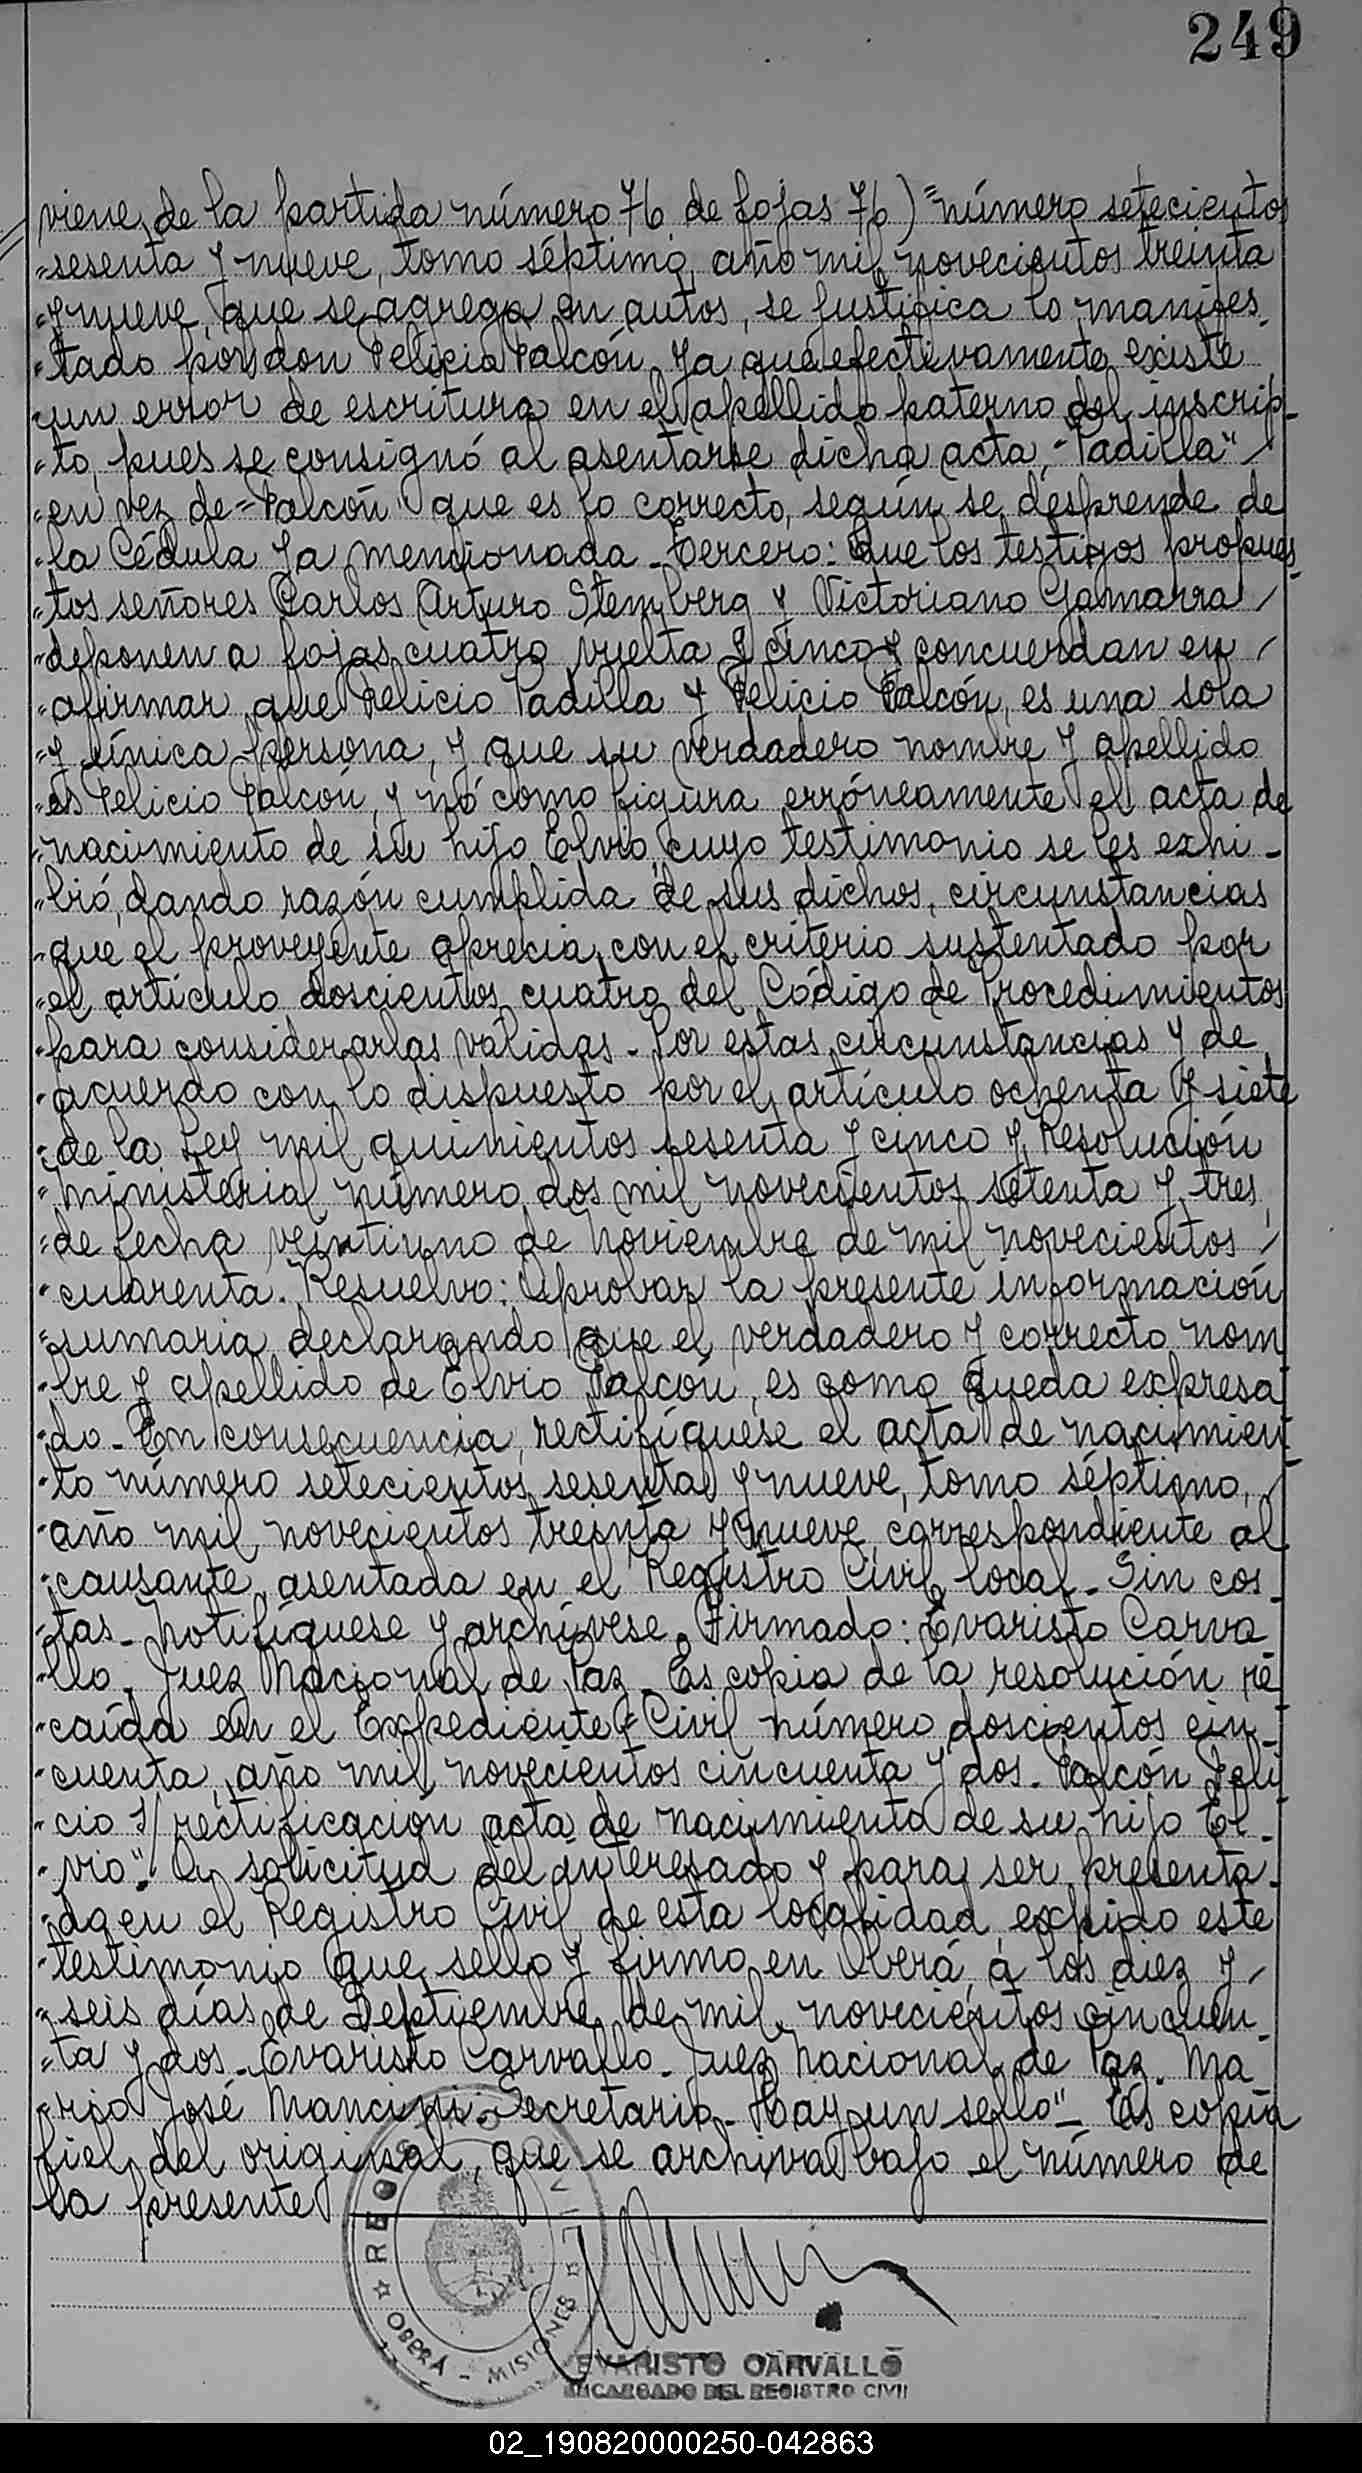 249
viene de la partida número 76 de fojas 76) "número setecientos
"sesenta y nueve, tomo séptimo, año mil novecientos treinta
"y nueve, que se agrega en autos, se justifica lo manifes-
"tado por don Felicio Falcón, ya que efectivamente existe
"un error de escritura en el apellido paterno del inscrip-
"to, pues se consignó al asentarse dicha acta, "Padilla"
"en vez de "Falcón" que es lo correcto, según se desprende de
"la Cédula ya mencionada. Tercero: Que los testigos propues-
"tos señores Carlos Arturo Stemberg y Victoriano Gamarra
"deponen a fojas cuatro vuelta y cinco y concuerdan en
"afirmar que Felicio Padilla y Felicio Falcón, es una sola
"y única persona, y que su verdadero nombre y apellido
"es Felicio Falcón, y nó como figura erróneamente el acta de
"nacimiento de su hijo Elvio, cuyo testimonio se les exhi-
"bió, dando razón cumplida de sus dichos, circunstancias
"que el proveyente aprecia con el criterio sustentado por
"el artículo doscientos cuatro del Código de Procedimientos
"para considerarlas validas - Por estas circunstancias y de
"acuerdo con lo dispuesto por el artículo ochenta y siete
"de la Ley mil quinientos sesenta y cinco y Resolución
"ministerial número dos mil novecientos setenta y tres,
"de fecha veintiuno de Noviembre de mil novecientos
"cuarenta. Resuelvo: Aprobar la presente información
"sumaria declarando que el verdadero y correcto nom
"bre y apellido de Elvio Falcón, es como queda expresa
"do - En consecuencia, rectifíquese el acta de nacimien
"to número setecientos sesenta y nueve, tomo séptimo,
"año mil novecientos treinta y nueve, correspondiente al
"causante, asentada en el Registro Civil local - Sin cos-
"tas - Notifíquese y archívese. Firmado: Evaristo Carva
"llo. Juez Nacional de Paz - Es copia de la resolución re
"caída en el Expediente "Civil número doscientos cin-
"cuenta, año mil novecientos cincuenta y dos - Falcón Feli
"cio s/ rectificación acta de nacimiento de su hijo El-
"vio". A solicitud del interesado y para ser presenta-
"da en el Registro Civil de esta localidad, expido este
"testimonio que sello y firmo en Oberá, á los diez y
"seis días de Septiembre de mil novecientos cincuen-
"ta y dos - Evaristo Carvallo - Juez Nacional de Paz. Ma
"rio José Mancini - Secretario - Hay un sello" - Es copia
fiel del original, que se archiva bajo el número de
la presente
REGISTRO CIVIL
OBERÁ - MISIONES
EVARISTO CARVALLO
ENCARGADO DEL REGISTRO CIVIL
02_190820000250-042863